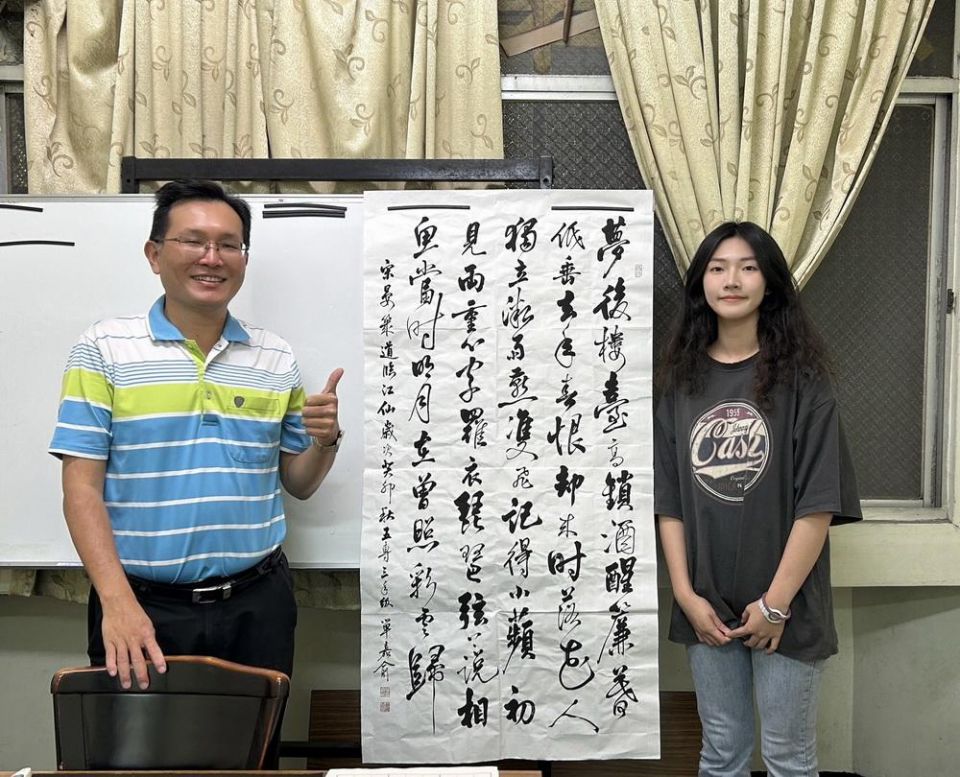 夢後樓臺高鎖酒醒簾幕
低垂去年春恨却来时落花人
獨立微雨燕雙飛記得小蘋初
見兩重心字羅衣琵琶弦上說相
思當时明月在曾照彩雲歸
宋晏幾道臨江仙歲次癸卯秋五專三年級單嘉俞
Cash